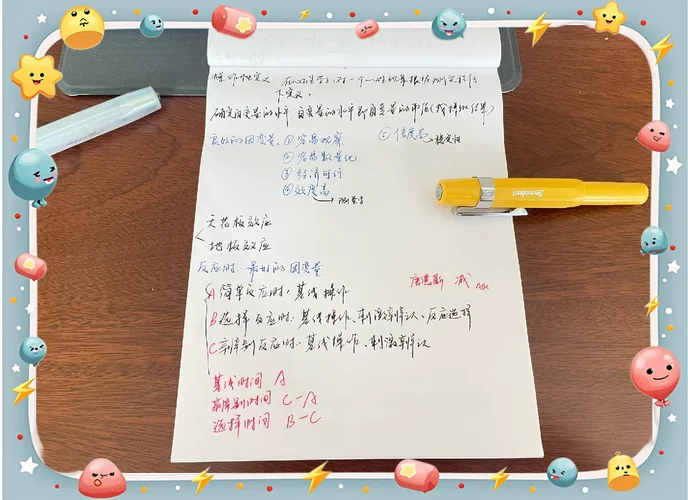 操作性定义 在心理学中,对一个心理现象根据测定程序
下定义。
确定因变量的水平 自变量的水平即自变量的
良好的因变量:①容易观察 ⑤信度高→稳定性
②容易数量化
③经济可行
④效度高
天花板效应
地板效应
反应时:最好的因变量
唐德斯 减 ABC
A简单反应时:基线操作
B选择反应时:基线操作、刺激辨认、反应选择
C辨别反应时:基线操作、刺激辨认
基线时间 A
辨别时间 C-A
选择时间 B-C